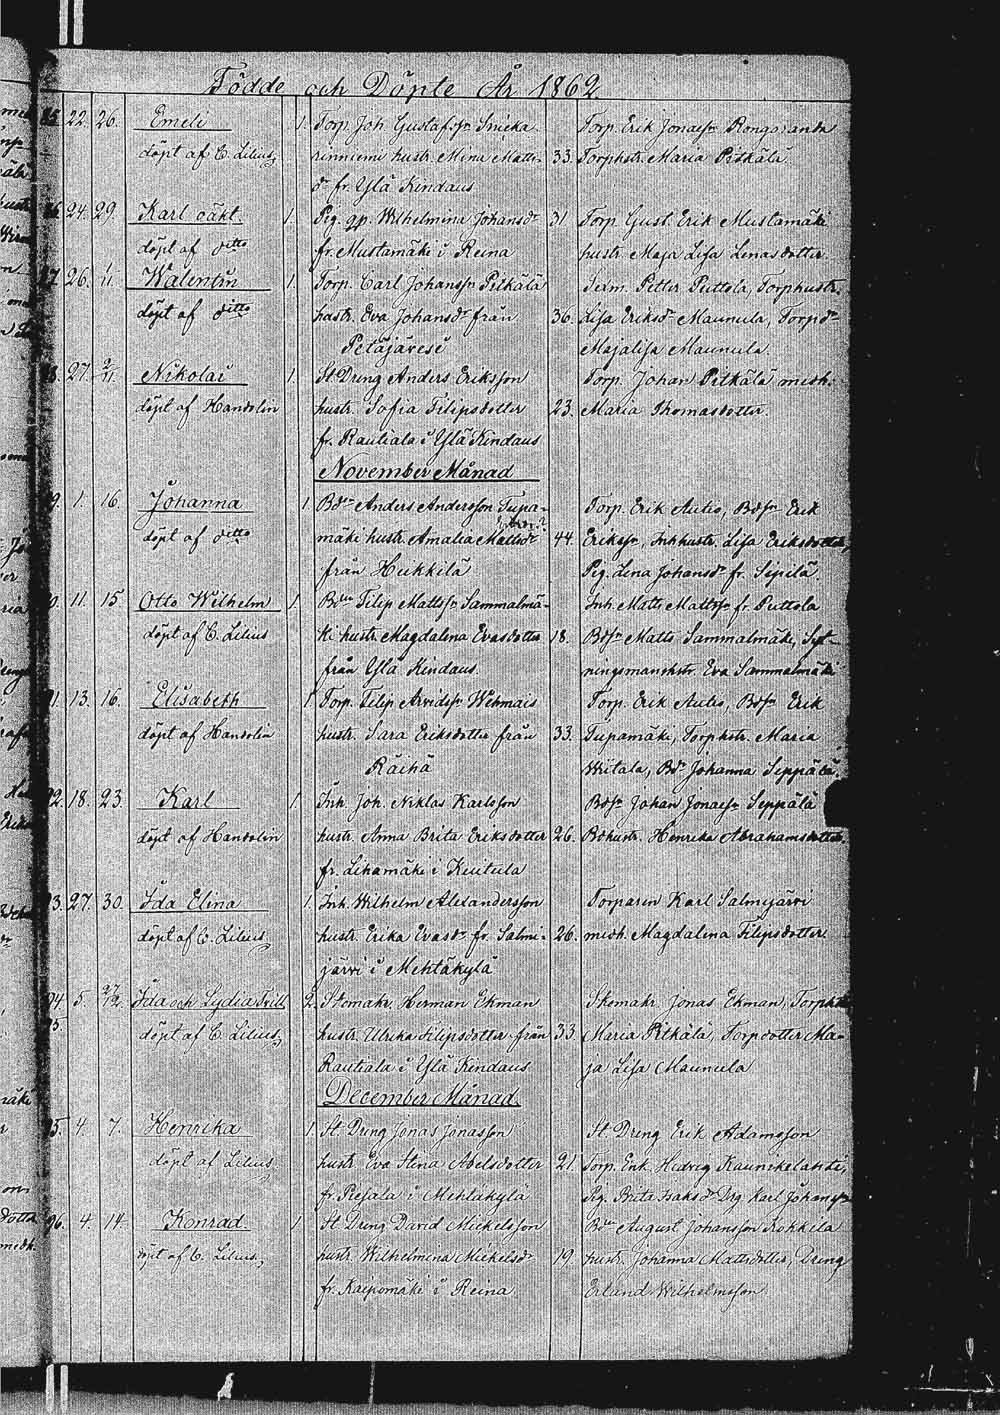 Födde och Döpte År 1862.
85. 22. 26. Emeli 1. Torp. Joh. Gustafsn Snicka- Torp. Erik Jonaesn
döpt af C. Lilius, rinniemi hustr. Mina Matts- 33. Torphstr. Maria Pitkälä
dr fr. Ylä Kindaus
86. 24. 29. Karl oäkt. 1. Pig. Wilhelmina Johansdr 31 Torp. Gust. Erik Mustamäki
döpt af ditto fr. Mustamäki i Reina hustr. Maja Lisa Lenasdotter.
87. 26. 1/11. Walentin 1. Torp. Carl Johanssn Pitkälä Petter Puttola, Torphustr.
döpt af ditto hustr. Eva Johansdr från 36. Lisa Eriksdr Maunula, Torpdr
Petäjäresi Majalisa Maunula.
88. 27. 2/11. Nikolai 1. St. Dreng Anders Eriksson Torp. Johan Pitkälä medh.
döpt af Handolin hustr. Sofia Filipsdotter 23. Maria Thomasdotter.
fr. Rautiala i Ylä Kindaus
November Månad
89. 1. 16. Johanna 1. Bdn Anders Andersson Tupa- Torp. Erik Autio, Bdsn Erik
döpt af ditto mäki hustr. Amalia Mattsdr 44. Erikssn, Inhhustr. Lisa Eriksdotter,
från Hukkila Pig. Lena Johansdr fr. Sipilä.
90. 11. 15. Otto Wilhelm 1. Bdn Filip Mattssn Sammalmä- Inh. Matts Mattssn fr. Puttola
döpt af C. Lilius ki hustr. Magdalena Evasdotter 18. Bdsn Matts Sammalmäki, Syt-
från Ylä Kindaus. ningsmanshstr. Eva Sammalmäki
91. 13. 16. Elisabeth 1. Torp. Filip Arvidsn Wehmais Torp. Erik Autio, Bdsn Erik
döpt af Handolin hustr. Sara Eriksdotter från 33. Tupamäki, Torphstr. Maria
Räihä Witala, Bdr Johanna Seppälä.
92. 18. 23. Karl 1. Inh. Joh. Niklas Karlsson Bdsn Johan Jonaesn Seppälä
döpt af Handolin hustr. Anna Brita Eriksdotter 26. Bdhustr. Henrika Abrahamsdotter.
fr. Lihamäki i Kuitula
93. 27. 30. Ida Elina 1. Inh. Wilhelm Alexandersson Torparen Karl Salmijärvi
döpt af C. Lilius, hustr. Erika Evasdr fr. Salmi- 26. medh. Magdalena Filipsdotter
järvi i Mehtäkylä
94. 5. 27/12. Ida och Lydia Tvill 2. Skomakr. Herman Ekman Skomakr Jonas Ekman, Torphstr
95. döpt af C. Lilius, hustr. Ulrika Filipsdotter från 33. Maria Pitkälä, Torpdotter Ma-
Rautiala i Ylä Kindaus ja Lisa Maunula
December Månad.
95. 4. 7. Henrika 1. St. Dreng Jonas Jonasson St. Dreng Erik Adamsson
döpt af Lilius hustr. Eva Stina Abelsdotter 21. Torp. Enk. Hedvig
fr. Pesala i Mehtäkylä Pig. Brita Isaksdr Drg Karl Johanssn
96. 4. 14. Konrad. 1 St. Dreng David Mickelsson Bdn August Johansson Kokkila
döpt af C. Lilius, hustr. Wilhelmina Mickelsdr 19. hustr. Johanna Mattsdotter, Dreng
fr. Kaipomäki i Reina Erland Wilhelmsson